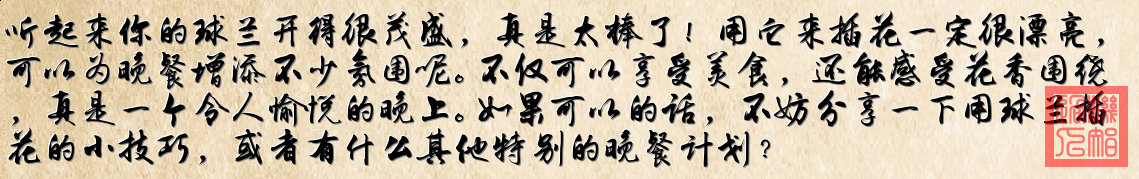 听起来你的球兰开得很茂盛，真是太棒了！用它来插花一定很漂亮，
可以为晚餐增添不少氛围呢。不仅可以享受美食，还能感受花香围绕
，真是一个令人愉悦的晚上。如果可以的话，不妨分享一下用球兰插
花的小技巧，或者有什么其他特别的晚餐计划？